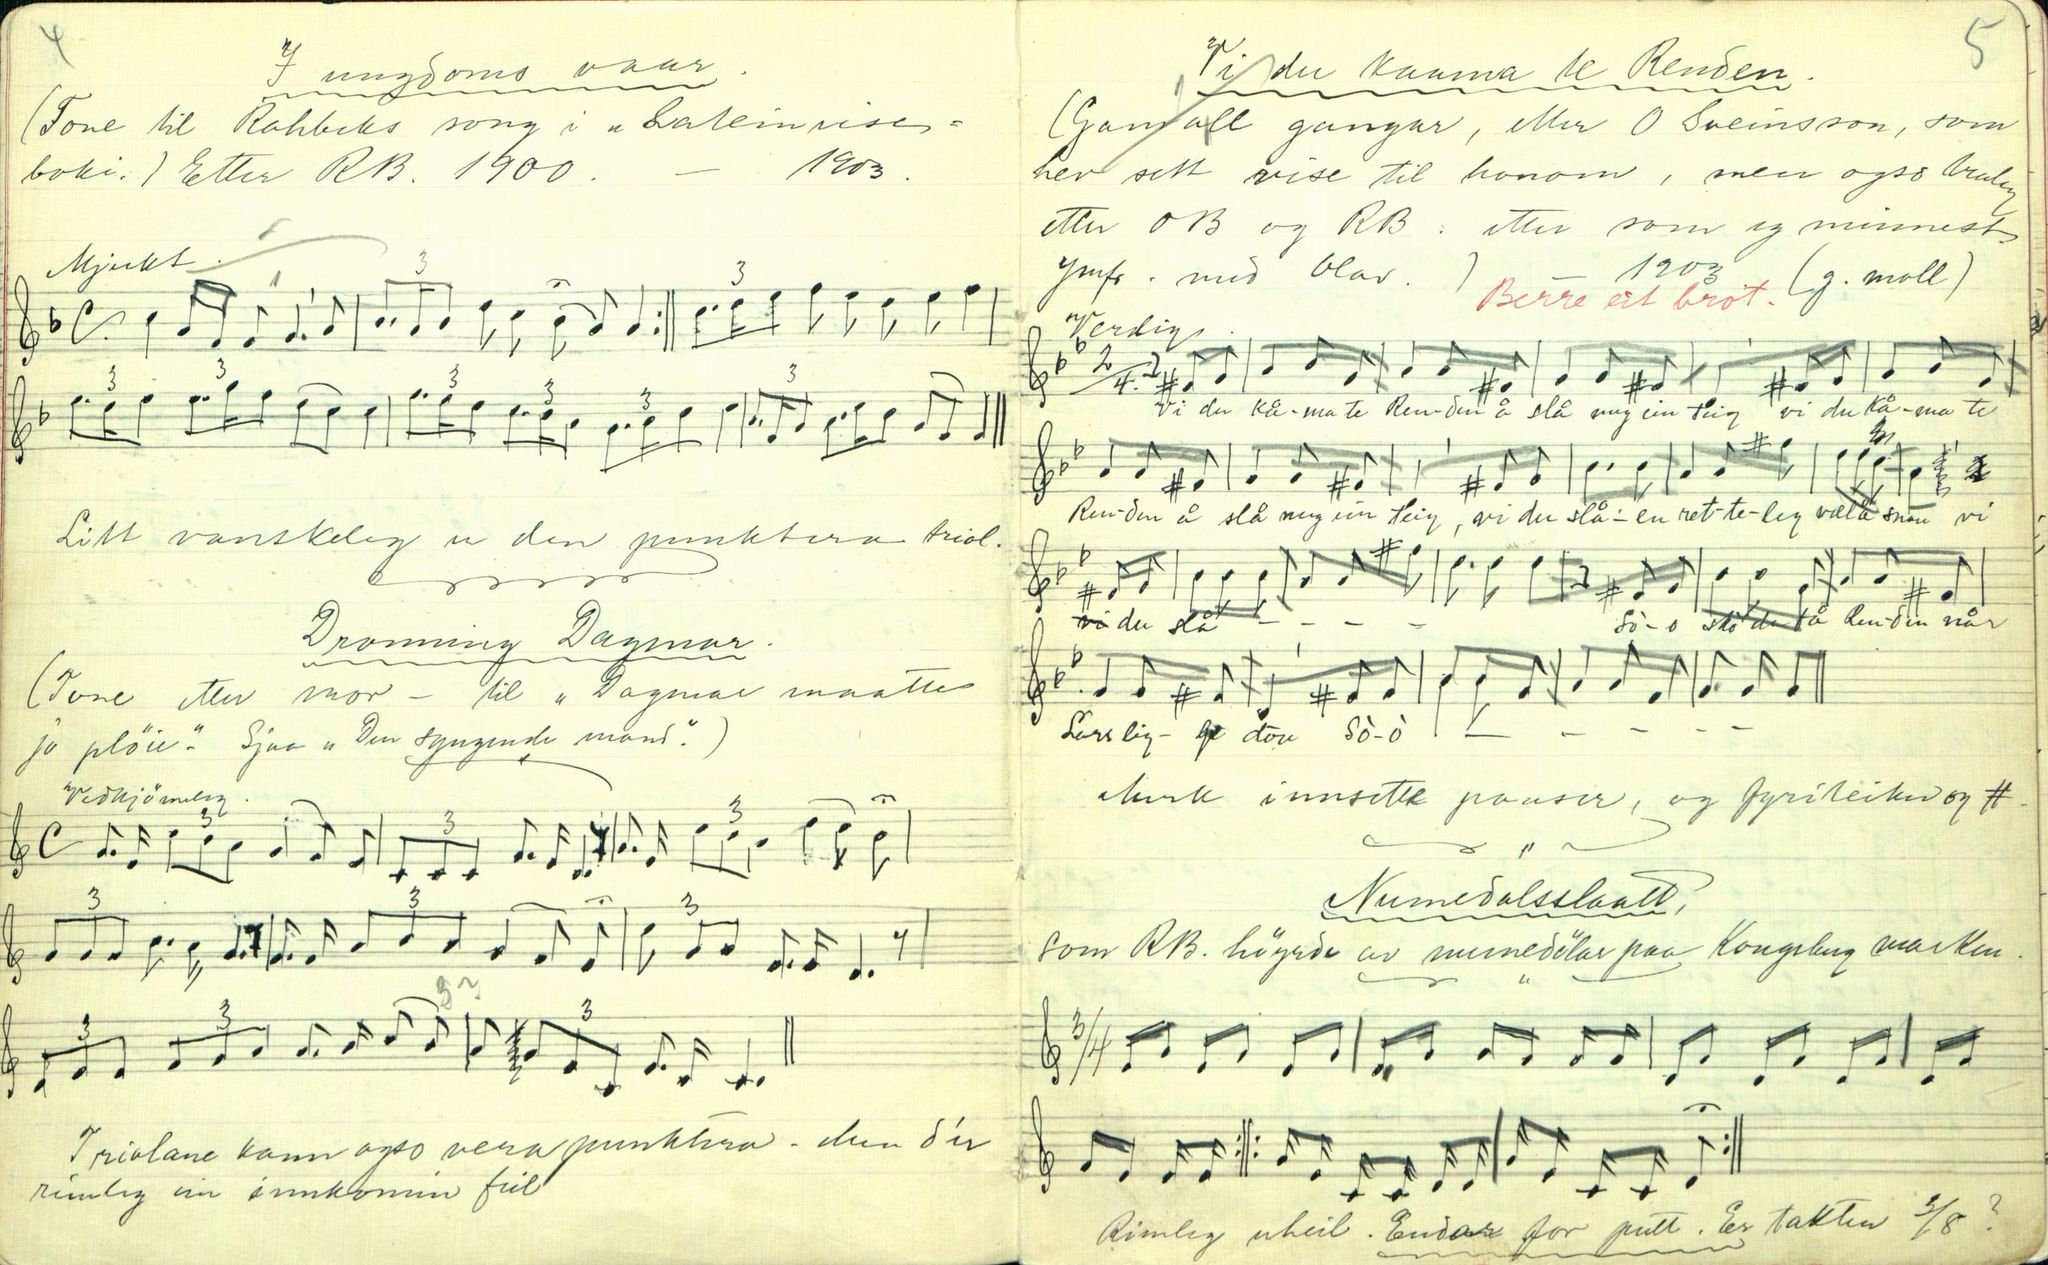 4
I ungdoms vaar.
(Tone til Rahbeks song i "Latinvise=
boki.) Etter RB. 1900. — 1903.
Mjukt.
3
3
3 3 3 3 3 3
Litt vanskeleg u den punktera triol.
Dronning Dagmar.
(Tone etter mor — til "Dagmar maatte
jo plöie". Sjaa "Den syngende mand".)
Vedkjömeleg.
3 3 3
3 3 3
3 3 3
Triolane kann ogso vera punktera - men d'er
rimleg ein innkomin feil
5
Vi du kaama te Renden.
(Gamall gangar, etter O Sveinsson, som
hev sett vise til honom, men ogso
etter OB og RB: etter som eg minnest
med Olav.) — 1903 (g. moll)
Berre eit brot.
Verdig.
2/4
Vi du kå-ma te Ren-den å slå meg ein teig vi du kå-ma te
Ren-den å slå meg ein teig, vi du slå-en ret-te-leg vi
vi du slå — — — — Sò-o tå Ren-den når
dòu Sò-ò — — — — —
Merk innsette pauser, og fyriteikn og #.
"
Numedalsslaatt,
som RB. höyrde av numedölar paa Kongsberg marken.
"
3/4
Rimleg uheil. Endar for putt. Er takten 3/8?